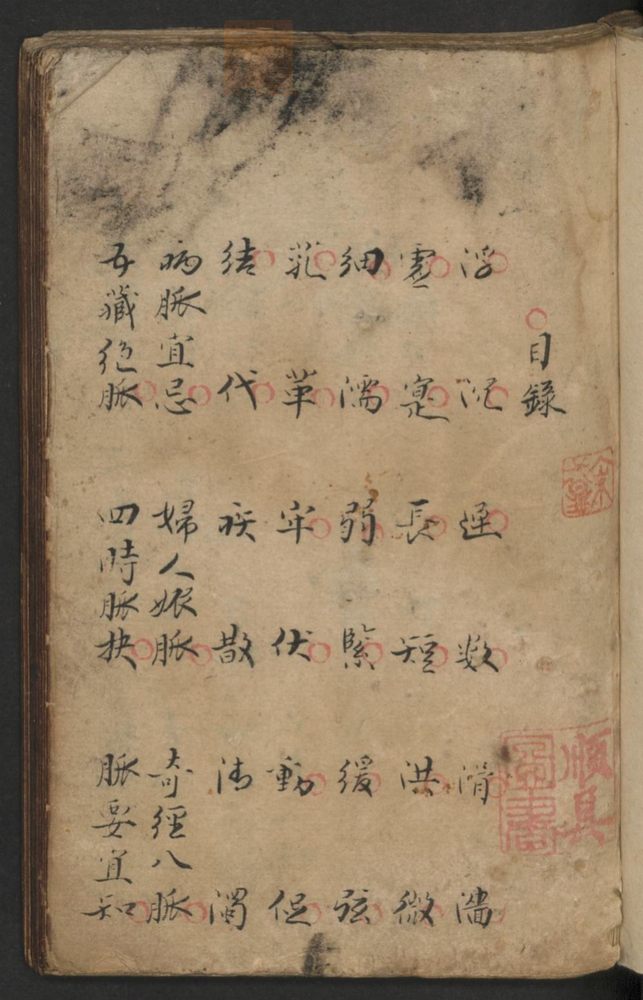 目錄
浮 沉 遲 数 滑 濇
虛 寔 長 短 洪 微
細 濡 弱 緊 緩 弦
芤 革 牢 伏 動 促
結 代 疾 散 清 濁
病脈宜忌 婦人娠脈 奇經八脈
五藏絕脈 四時脈抉 脈要宜知